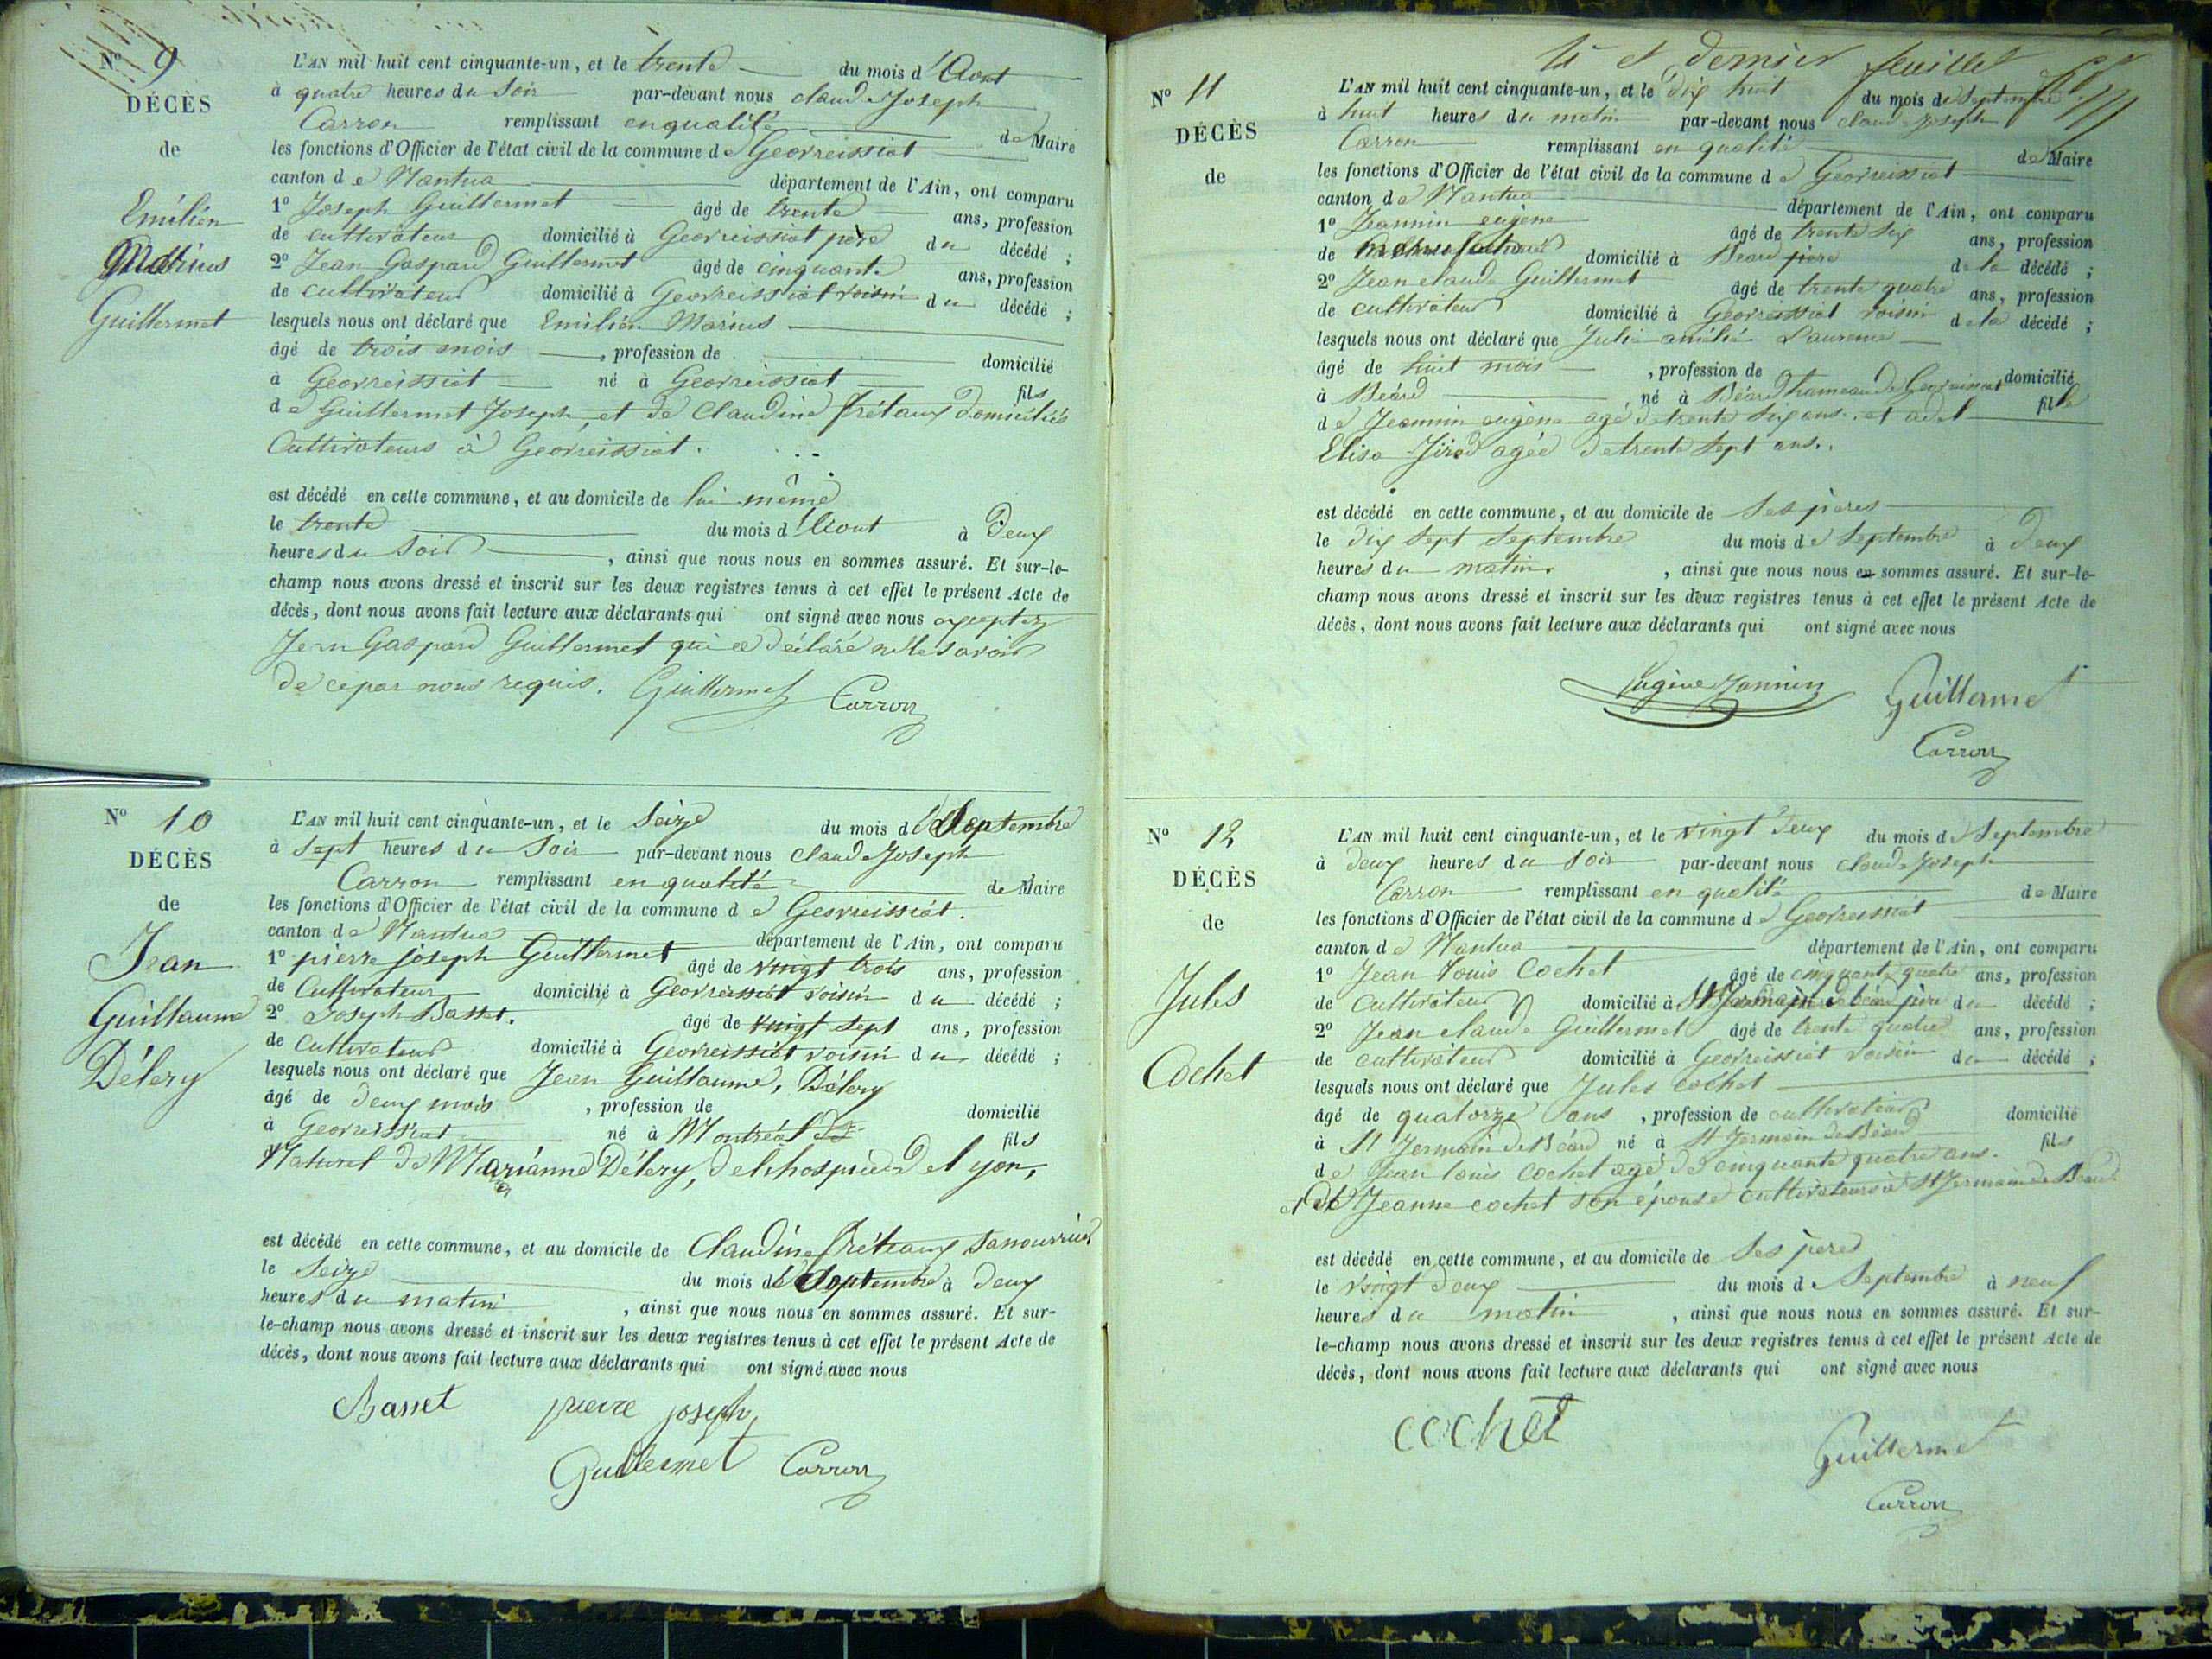 N° 9
DÉCÈS
de
Emilien
Marius
Guillermet
L'AN mil huit cent cinquante-un, et le trente du mois d'Aout
à quatre heures du Soir par-devant nous claude Joseph
Carron remplissant en qualité de Maire
les fonctions d'Officier de l'état civil de la commune de Georreissiat
canton de Nantua département de l'Ain, ont comparu
1° Joseph Guillermet âgé de trente ans, profession
de cultivateur domicilié à Georreissiat père du décédé ;
2° Jean Gaspard Guillermet âgé de cinquante ans, profession
de cultivateur domicilié à Georreissiat voisin du décédé ;
lesquels nous ont déclaré que Emilien Marius
âgé de trois mois, profession de domicilié
à Georreissiat né à Georreissiat fils
de Guillermet Joseph, et de Claudine frétaux domiciliés
Cultivateurs à Georreissiat.
est décédé en cette commune, et au domicile de lui même
le trente du mois d'Aout à Deux
heures du Soir, ainsi que nous nous en sommes assuré. Et sur-le-
champ nous avons dressé et inscrit sur les deux registres tenus à cet effet le présent Acte de
décès, dont nous avons fait lecture aux déclarants qui ont signé avec nous exceptez
Jean Gaspard Guillermet qui a déclaré ne le savoir
de ce par nous requis. Guillermet Carron
N° 10
DÉCÈS
de
Jean
Guillaume
Délery
L'AN mil huit cent cinquante-un, et le Seize du mois de Septembre
à Sept heures du Soir par-devant nous claude Joseph
Carron remplissant en qualité de Maire
les fonctions d'Officier de l'état civil de la commune de Georreissiat.
canton de Nantua département de l'Ain, ont comparu
1° pierre joseph Guillermet âgé de vingt trois ans, profession
de Cultivateur domicilié à Georreissiat voisin du décédé ;
2° Joseph Basset. âgé de vingt sept ans, profession
de Cultivateur domicilié à Georreissiat voisin du décédé ;
lesquels nous ont déclaré que Jean Guillaume, Délery
âgé de deux mois, profession de domicilié
à Georreissiat né à Montréal fils
Naturel de Marianne Délery, de lhospice de lyon,
est décédé en cette commune, et au domicile de Claudine frétaux sa nourrice
le Seize du mois de Septembre à deux
heures du matin, ainsi que nous nous en sommes assuré. Et sur-
le-champ nous avons dressé et inscrit sur les deux registres tenus à cet effet le présent Acte de
décès, dont nous avons fait lecture aux déclarants qui ont signé avec nous
Basset pierre joseph
Guillermet Carron
et dernier feuillet
N° 11
DÉCÈS
de
L'AN mil huit cent cinquante-un, et le Dix huit du mois de Septembre
à huit heures du matin par-devant nous claude Joseph
Carron remplissant en qualité de Maire
les fonctions d'Officier de l'état civil de la commune de Georreissiat
canton de Nantua département de l'Ain, ont comparu
1° Jeannin eugène âgé de trente six ans, profession
de domicilié à Béard père de la décédé ;
2° Jean claude Guillermet âgé de trente quatre ans, profession
de cultivateur domicilié à Georreissiat voisin de la décédé ;
lesquels nous ont déclaré que Julie amélie Laurence
âgé de huit mois, profession de domicilié
à Béard, né à Béard hameau de Georreissiat fille
de Jeannin eugène agé de trente six ans. et adel
Elisa Jirod agée de trente sept ans.
est décédé en cette commune, et au domicile de Ses pères
le dix sept Septembre du mois de Septembre à deux
heures du matin, ainsi que nous nous en sommes assuré. Et sur-le-
champ nous avons dressé et inscrit sur les deux registres tenus à cet effet le présent Acte de
décès, dont nous avons fait lecture aux déclarants qui ont signé avec nous
Eugène Jannin Guillermet
Carron
N° 12
DÉCÈS
de
Jules
Cochet
L'AN mil huit cent cinquante-un, et le vingt deux du mois de Septembre
à deux heures du Soir par-devant nous claude Joseph
Carron remplissant en qualité de Maire
les fonctions d'Officier de l'état civil de la commune de Georreissiat
canton de Nantua département de l'Ain, ont comparu
1° Jean Louis Cochet âgé de cinquante quatre ans, profession
de Cultivateur domicilié à St Jermain de béard père du décédé ;
2° Jean claude Guillermet âgé de trente quatre ans, profession
de cultivateur domicilié à Georreissiat voisin du décédé ;
lesquels nous ont déclaré que Jules Cochet
âgé de quatorze ans, profession de cultivateur domicilié
à St Jermain de Béard né à St Jermain de Béard fils
de Jean louis Cochet agé de cinquante quatre ans.
et de Jeanne cochet son épouse cultivateurs à St Jermain de Béard
est décédé en cette commune, et au domicile de Ses pères
le vingt deux du mois de Septembre à neuf
heures du matin, ainsi que nous nous en sommes assuré. Et sur-
le-champ nous avons dressé et inscrit sur les deux registres tenus à cet effet le présent Acte de
décès, dont nous avons fait lecture aux déclarants qui ont signé avec nous
cochet Guillermet
Carron